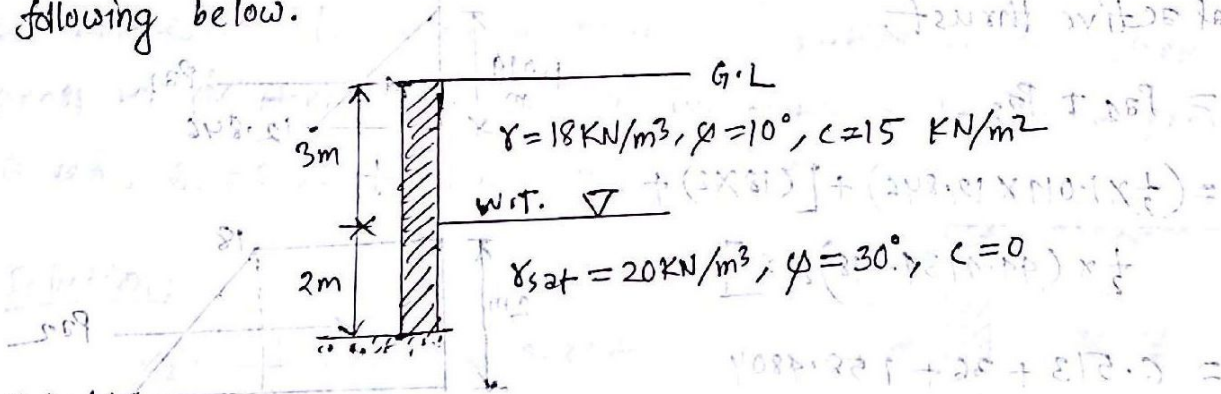 following below.
G.L
γ = 18 KN/m³, φ = 10°, c = 15 KN/m²
3m
W.T. ▽
2m
γsat = 20 KN/m³, φ = 30°, c = 0